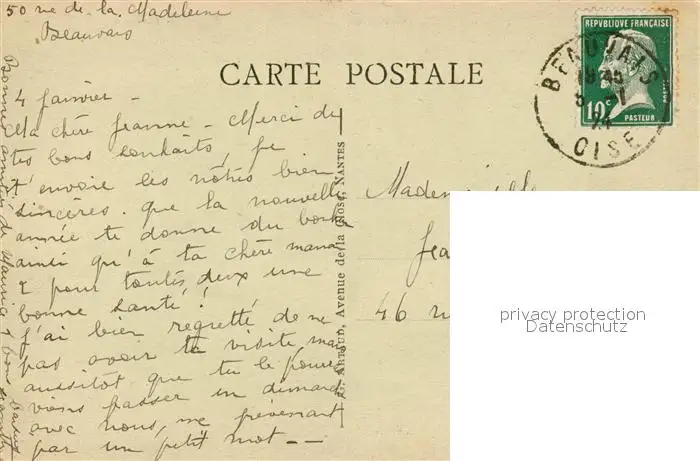 50 rue de la Madeleine
Beauvais
CARTE POSTALE
REPUBLIQUE FRANÇAISE
POSTES
10c
PASTEUR
BEAUVAIS
19 45
5 1
24
OISE
4 janvier -
Ma chère Jeanne - Merci de
tes bons souhaits, je
t'envoie les nôtres bien
sincères. que la nouvelle
année te donne du bonheur
ainsi qu'à ta chère maman
& pour toutes deux une
bonne santé !
J'ai bien regretté de ne
pas avoir ta visite, mais
aussitôt que tu le pourras
viens passer un dimanche
avec nous, me prévenant
par un petit mot --
Bonnes amitiés de Maman & bons baisers
G. ARTAUD, Avenue de la Close, NANTES
Mademoiselle
Jea
46 ru
privacy protection
Datenschutz